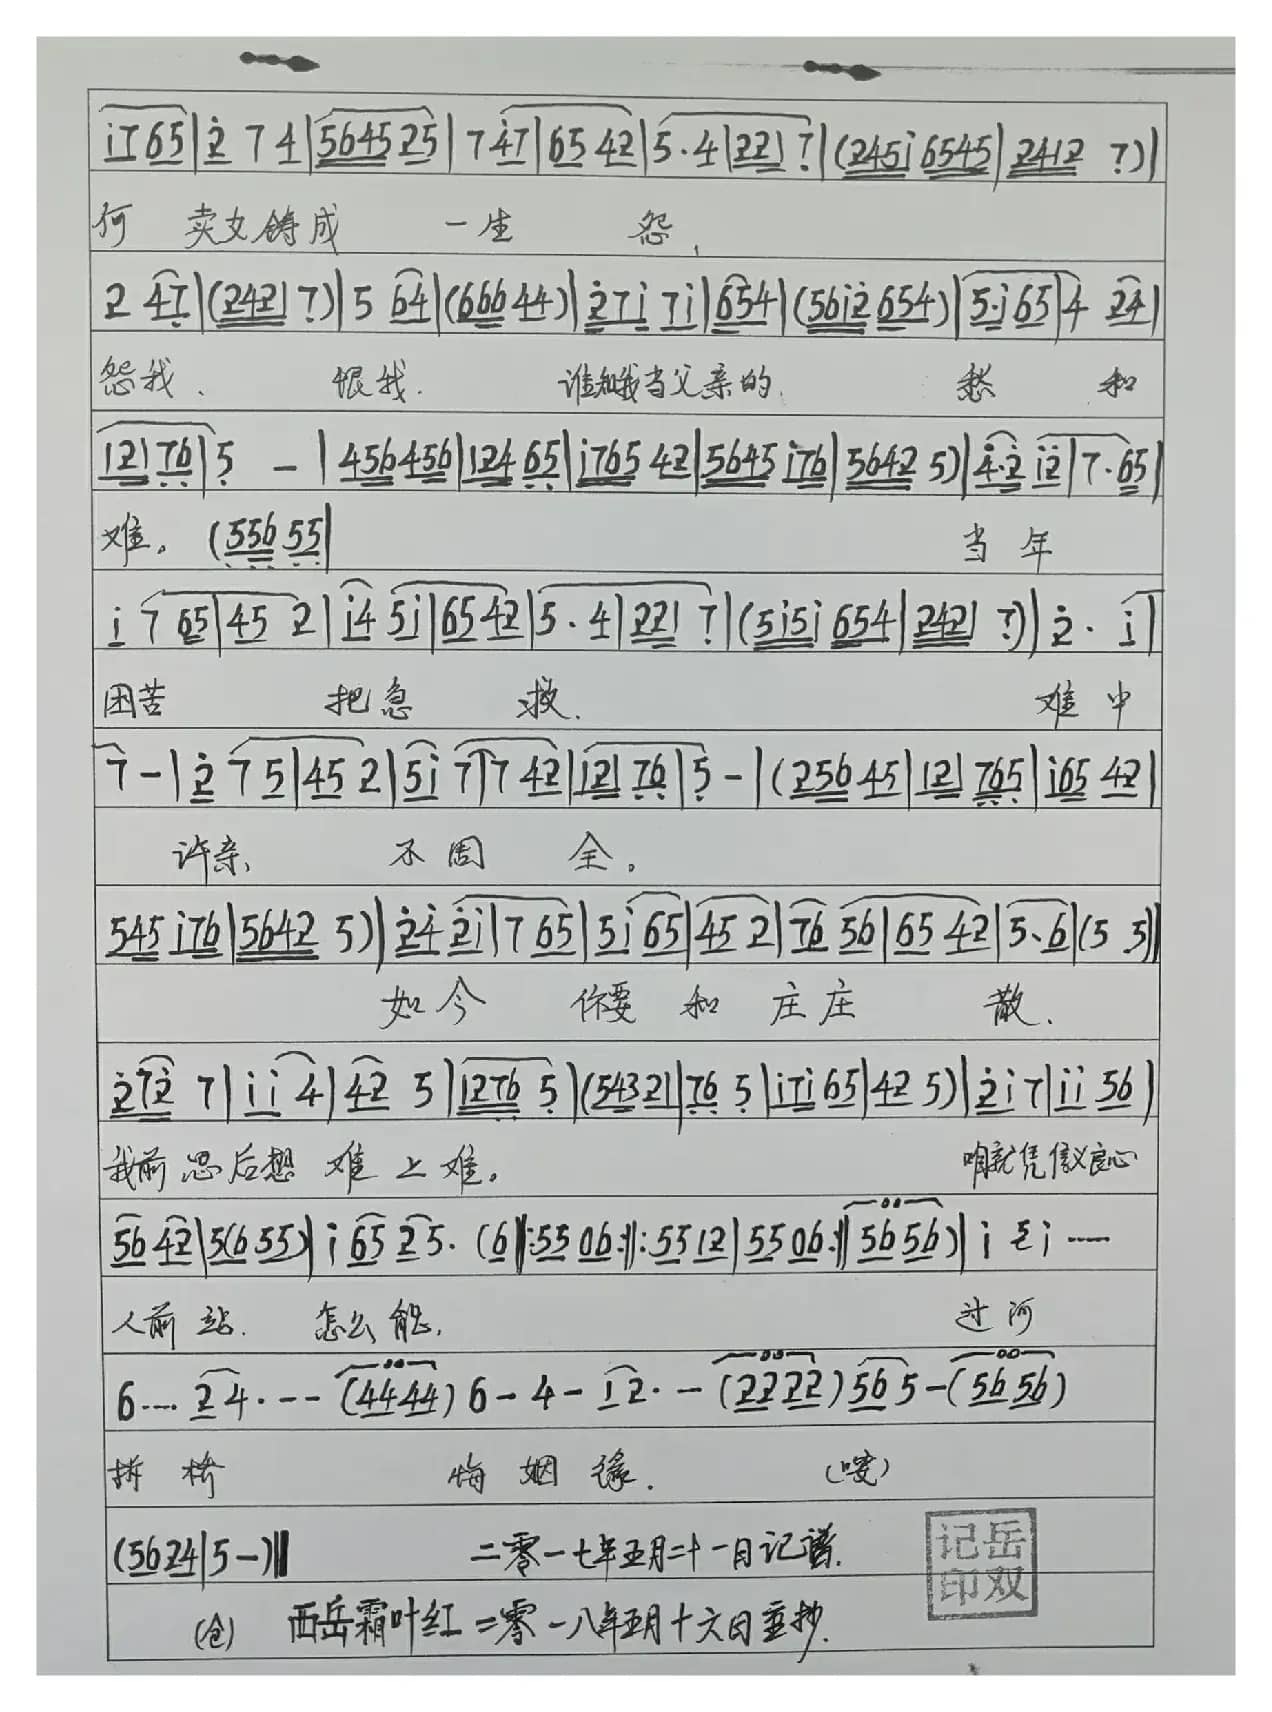 i765|ż 7 4|564525|7 47|65 42|5·4|221 7|(245i 6545|2412 7)|
何 卖女铸成 一生 怨,
2 47|(2421 7)|5 64|(666 44)|ż7i 7i|654|(56iż 654)|5·i65|4 24|
怨我. 恨我. 谁知我当父亲的. 愁 和
121 76|5 - |456456|124 65|i765 42|5645 i76|5642 5)|4·ż iż|7·65|
难。(556 55| 当 年
i 7 65|45 2|i4 5i|65 42|5·4|221 7|(5i5i 654|2421 7)|ż· i|
困苦 把急 救. 难中
7 -|ż 7 5|45 2|5i 7|7 42|121 76|5 -|(256 45|121 765|i65 42|
许亲, 不周 全。
545 i76|5642 5)|ż4 żi|7 65|5i 65|45 2|76 56|65 42|5·6|(5 5)|
如今 你要 和 庄庄 散.
ż7ż 7|i i 4|42 5|1276 5|(54321|76 5|i7i 65|42 5)|ż i 7|ii 56|
我前思后想 难上难。 咱就凭仗义良心
56 42|5(6 55)|i 65 25·(6‖:55 06:‖:55 12|55 06:‖56 56)|i ży i ······
人前 站. 怎么能, 过河
6···· 24·-- (4444) 6-4-12·- (2222) 56 5-(56 56)
拆桥 悔姻缘. (嗳)
(5624|5-)‖ 二零一七年五月二十一日记谱.
(仓) 西岳霜叶红 二零一八年五月十六日重抄.
岳双
记印